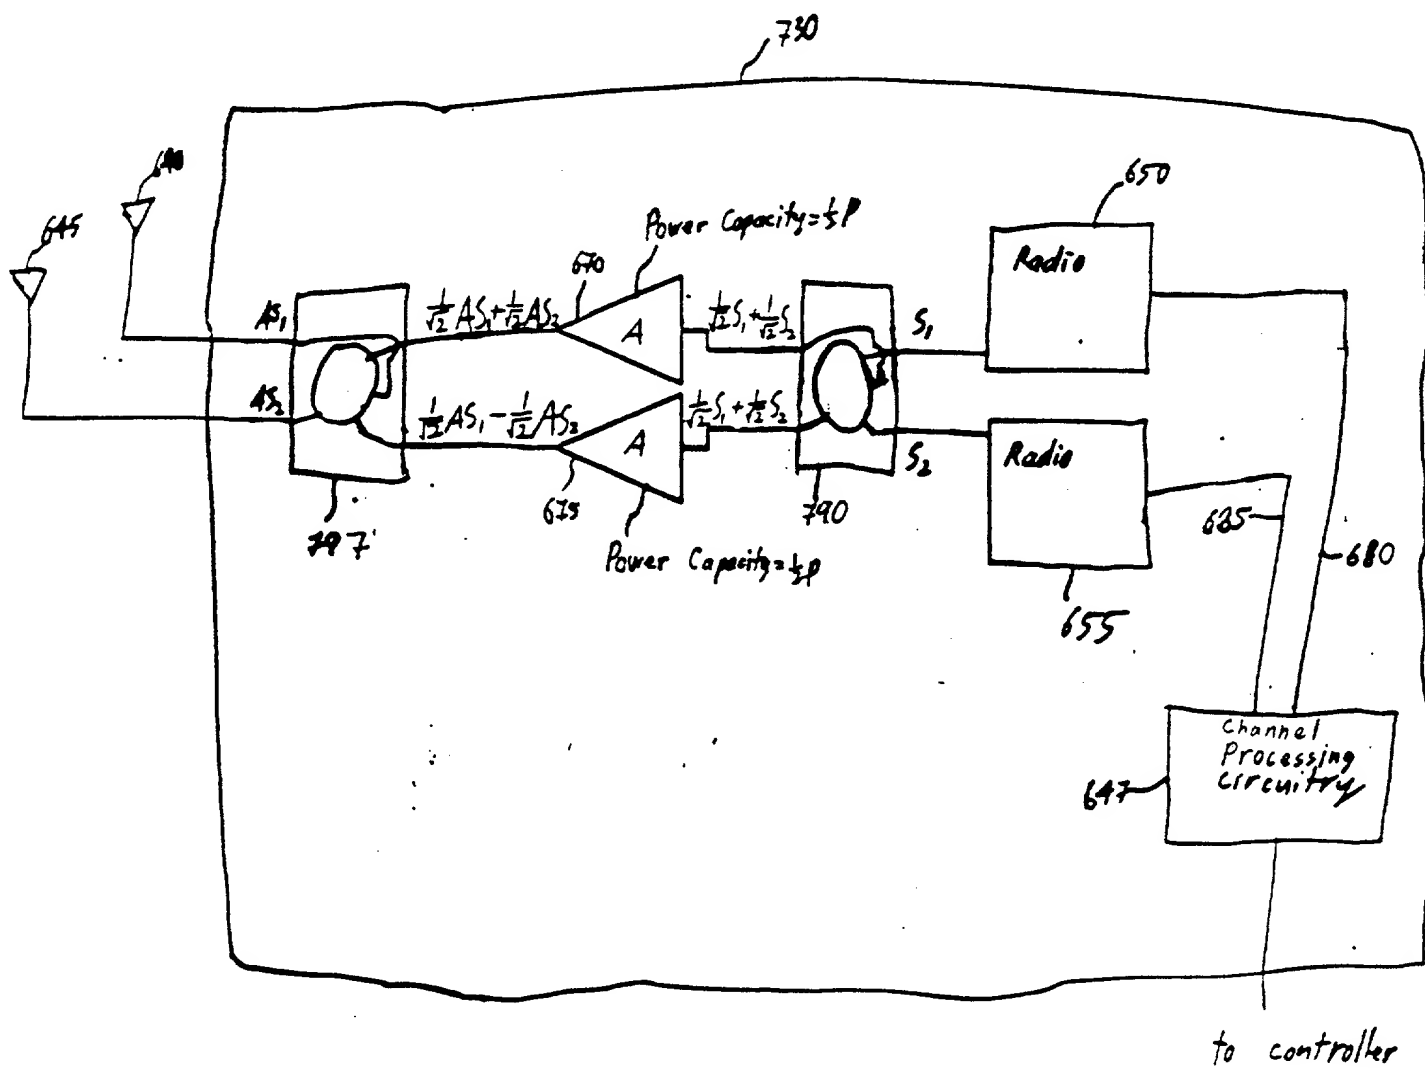 730
640
645
650
Power Capacity=½P
670
Radio
AS₁
1/√2 AS₁+1/√2 AS₂
A
1/√2 S₁+1/√2 S₂
S₁
AS₂
1/√2 AS₁-1/√2 AS₂
A
1/√2 S₁+1/√2 S₂
S₂
Radio
675
790
797
685
Power Capacity=½P
680
655
Channel
Processing
Circuitry
647
to controller